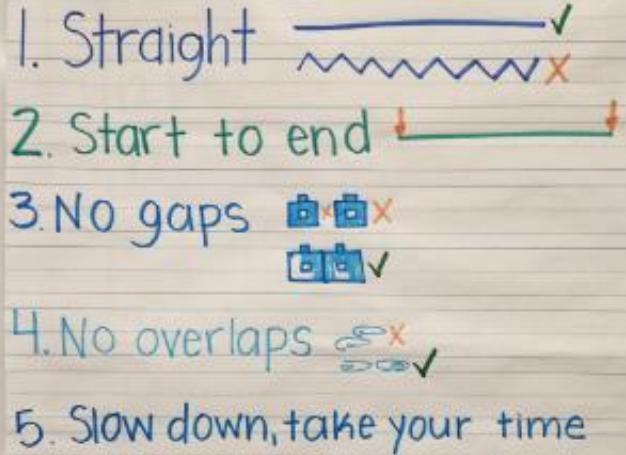 1. Straight
2. Start to end
3. No gaps
4. No overlaps
5. Slow down, take your time